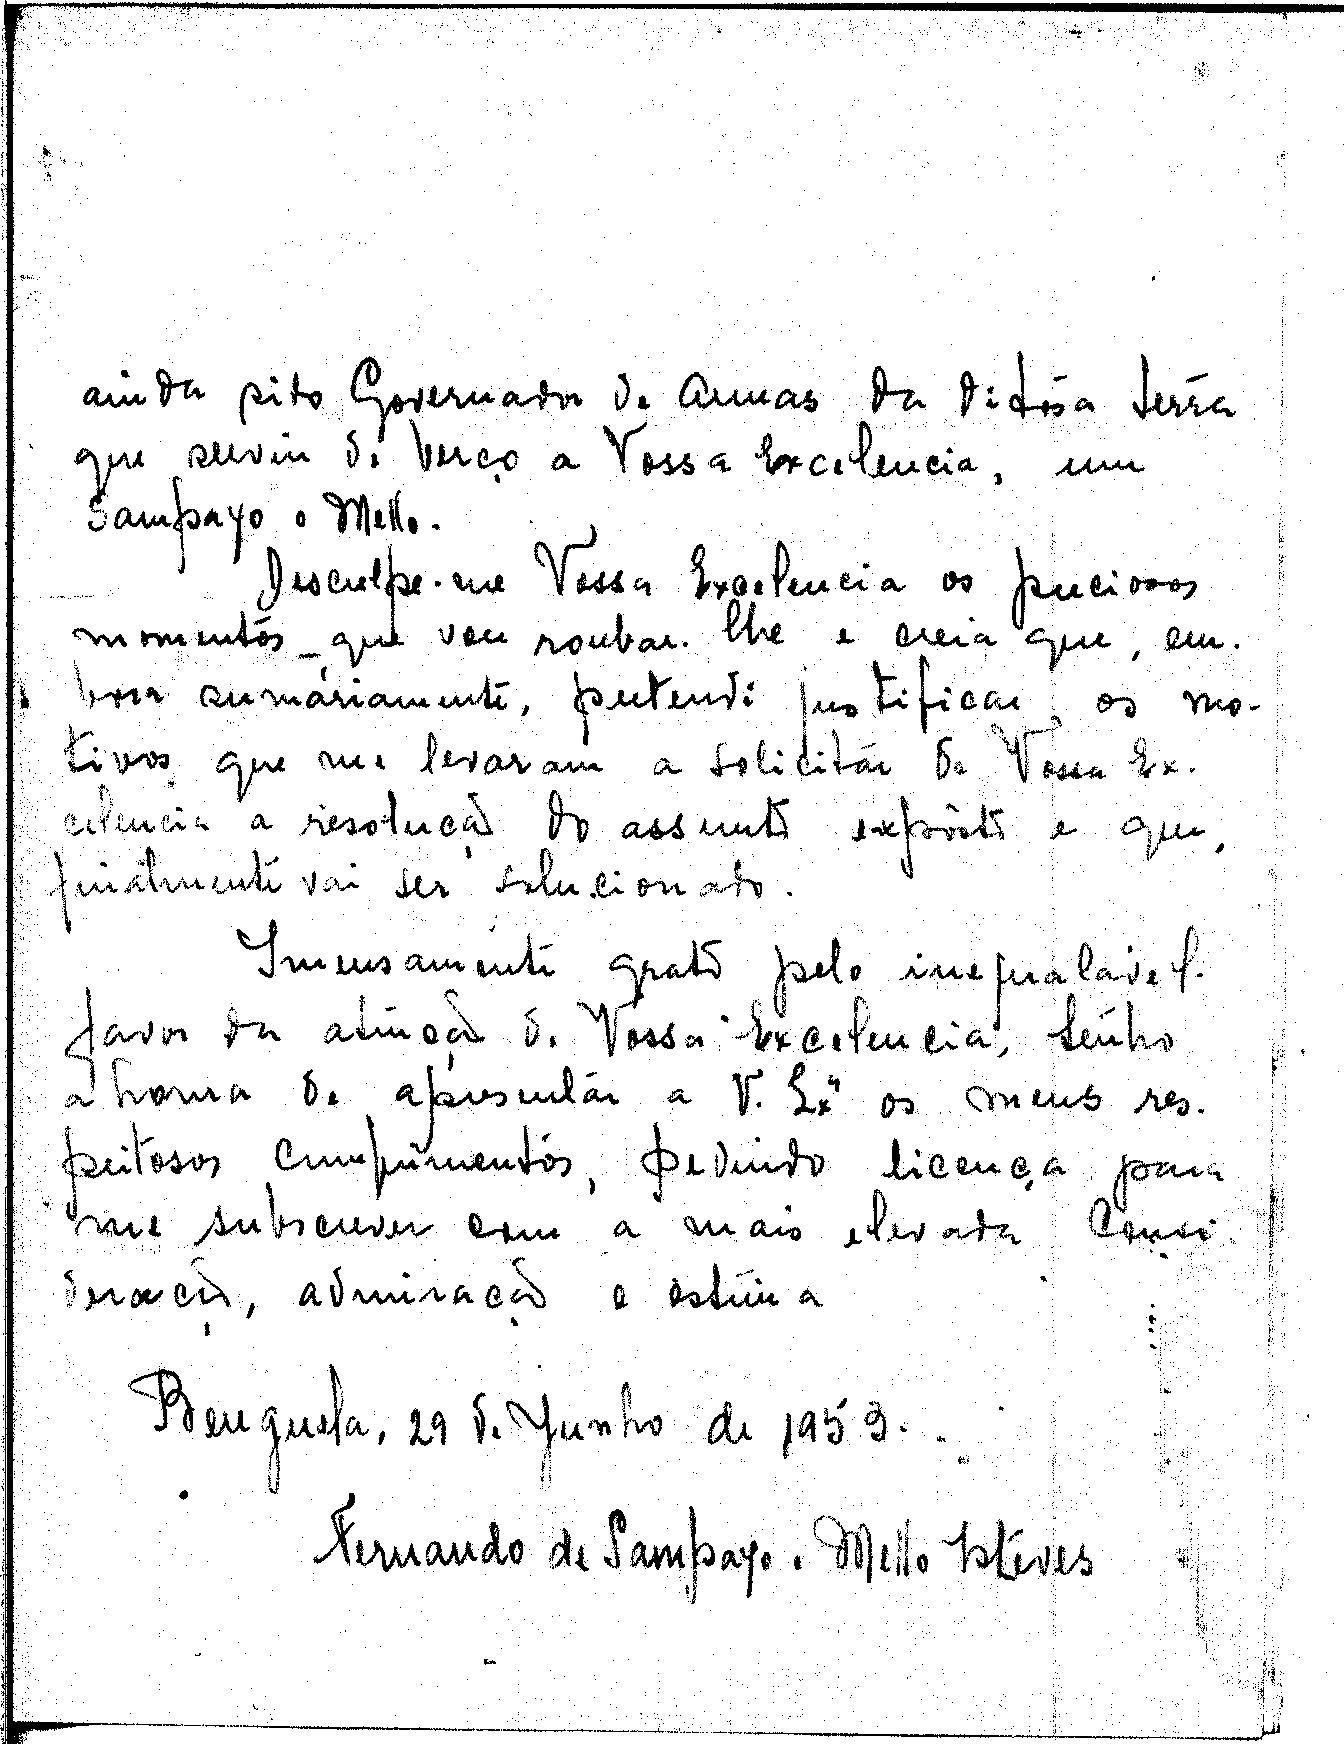 ainda sido Governador de Armas da ditósa terra
que serviu de berço a Vossa Excelencia, um
Sampayo e Mello.
Desculpe-me Vossa Excelencia os preciosos
momentos que vou roubar-lhe e creia que, em-
bora sumáriamente, pretendi justificar os mo-
tivos que me levaram a solicitar de Vossa Ex-
celencia a resolução do assunto expôsto e que,
finalmente vai ser solucionado.
Imensamente grato pelo inegualavel
favor da atenção de Vossa Excelencia, tenho
a honra de apresentar a V. Exª os meus res-
peitosos cumprimentos, pedindo licença para
me subscrever com a mais elevada consi
deração, admiração e estima
Benguela, 29 de Junho de 1953.
Fernando de Sampayo e Mello Esteves